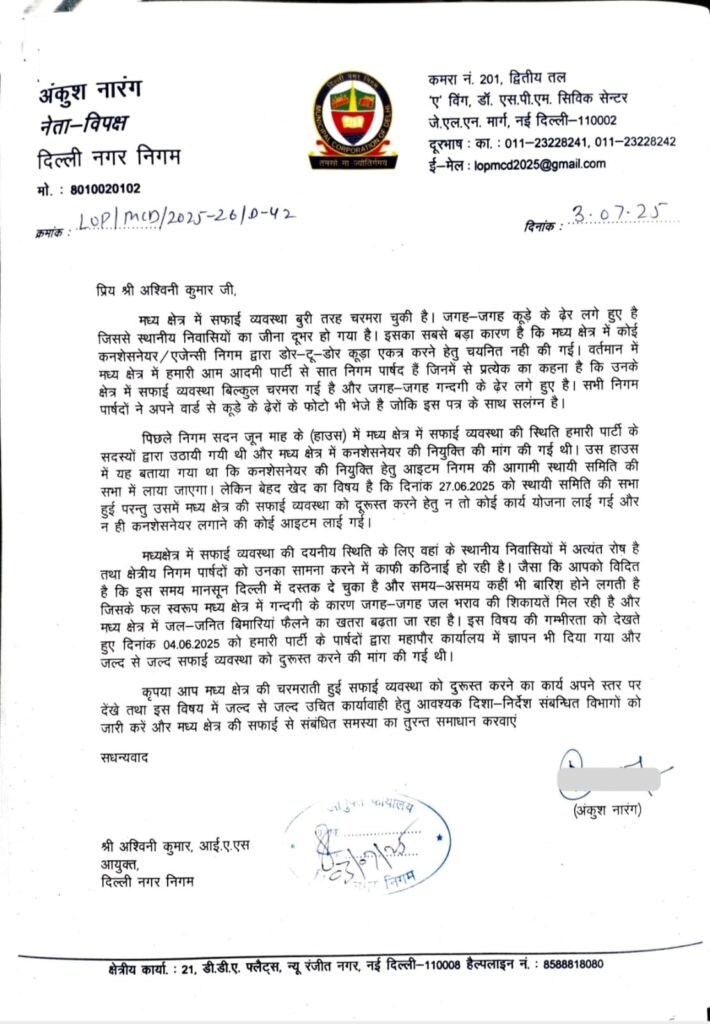 अंकुश नारंग
नेता-विपक्ष
दिल्ली नगर निगम
मो. : 8010020102
क्रमांक : LOP/MCD/2025-26/D-42
MUNICIPAL CORPORATION OF DELHI
तमसो मा ज्योतिर्गमय
कमरा नं. 201, द्वितीय तल
'ए' विंग, डॉ. एस.पी.एम. सिविक सेन्टर
जे.एल.एन. मार्ग, नई दिल्ली-110002
दूरभाष : का. : 011-23228241, 011-23228242
ई-मेल : lopmcd2025@gmail.com
दिनांक : 3.07.25
प्रिय श्री अश्विनी कुमार जी,
मध्य क्षेत्र में सफाई व्यवस्था बुरी तरह चरमरा चुकी है। जगह-जगह कूड़े के ढ़ेर लगे हुए है
जिससे स्थानीय निवासियों का जीना दूभर हो गया है। इसका सबसे बड़ा कारण है कि मध्य क्षेत्र में कोई
कनशेसनेयर/एजेन्सी निगम द्वारा डोर-टू-डोर कूड़ा एकत्र करने हेतु चयनित नही की गई। वर्तमान में
मध्य क्षेत्र में हमारी आम आदमी पार्टी से सात निगम पार्षद हैं जिनमें से प्रत्येक का कहना है कि उनके
क्षेत्र में सफाई व्यवस्था बिल्कुल चरमरा गई है और जगह-जगह गन्दगी के ढ़ेर लगे हुए है। सभी निगम
पार्षदों ने अपने वार्ड से कूड़े के ढ़ेरों के फोटो भी भेजे है जोकि इस पत्र के साथ सलंग्न है।
पिछले निगम सदन जून माह के (हाउस) में मध्य क्षेत्र में सफाई व्यवस्था की स्थिति हमारी पार्टी के
सदस्यों द्वारा उठायी गयी थी और मध्य क्षेत्र में कनशेसनेयर की नियुक्ति की मांग की गई थी। उस हाउस
में यह बताया गया था कि कनशेसनेयर की नियुक्ति हेतु आइटम निगम की आगामी स्थायी समिति की
सभा में लाया जाएगा। लेकिन बेहद खेद का विषय है कि दिनांक 27.06.2025 को स्थायी समिति की सभा
हुई परन्तु उसमें मध्य क्षेत्र की सफाई व्यवस्था को दुरूस्त करने हेतु न तो कोई कार्य योजना लाई गई और
न ही कनशेसनेयर लगाने की कोई आइटम लाई गई।
मध्यक्षेत्र में सफाई व्यवस्था की दयनीय स्थिति के लिए वहां के स्थानीय निवासियों में अत्यंत रोष है
तथा क्षेत्रीय निगम पार्षदों को उनका सामना करने में काफी कठिनाई हो रही है। जैसा कि आपको विदित
है कि इस समय मानसून दिल्ली में दस्तक दे चुका है और समय-असमय कहीं भी बारिश होने लगती है
जिसके फल स्वरूप मध्य क्षेत्र में गन्दगी के कारण जगह-जगह जल भराव की शिकायतें मिल रही है और
मध्य क्षेत्र में जल-जनित बिमारियां फैलने का खतरा बढ़ता जा रहा है। इस विषय की गम्भीरता को देखते
हुए दिनांक 04.06.2025 को हमारी पार्टी के पार्षदों द्वारा महापौर कार्यालय में ज्ञापन भी दिया गया और
जल्द से जल्द सफाई व्यवस्था को दुरूस्त करने की मांग की गई थी।
कृपया आप मध्य क्षेत्र की चरमराती हुई सफाई व्यवस्था को दुरूस्त करने का कार्य अपने स्तर पर
देखे तथा इस विषय में जल्द से जल्द उचित कार्यवाही हेतु आवश्यक दिशा-निर्देश संबन्धित विभागों को
जारी करें और मध्य क्षेत्र की सफाई से संबंधित समस्या का तुरन्त समाधान करवाएं
सधन्यवाद
(अंकुश नारंग)
कार्यालय
03/07/25
निगम
श्री अश्विनी कुमार, आई.ए.एस
आयुक्त,
दिल्ली नगर निगम
क्षेत्रीय कार्या. : 21, डी.डी.ए. फ्लैट्स, न्यू रंजीत नगर, नई दिल्ली-110008 हैल्पलाइन नं. : 8588818080